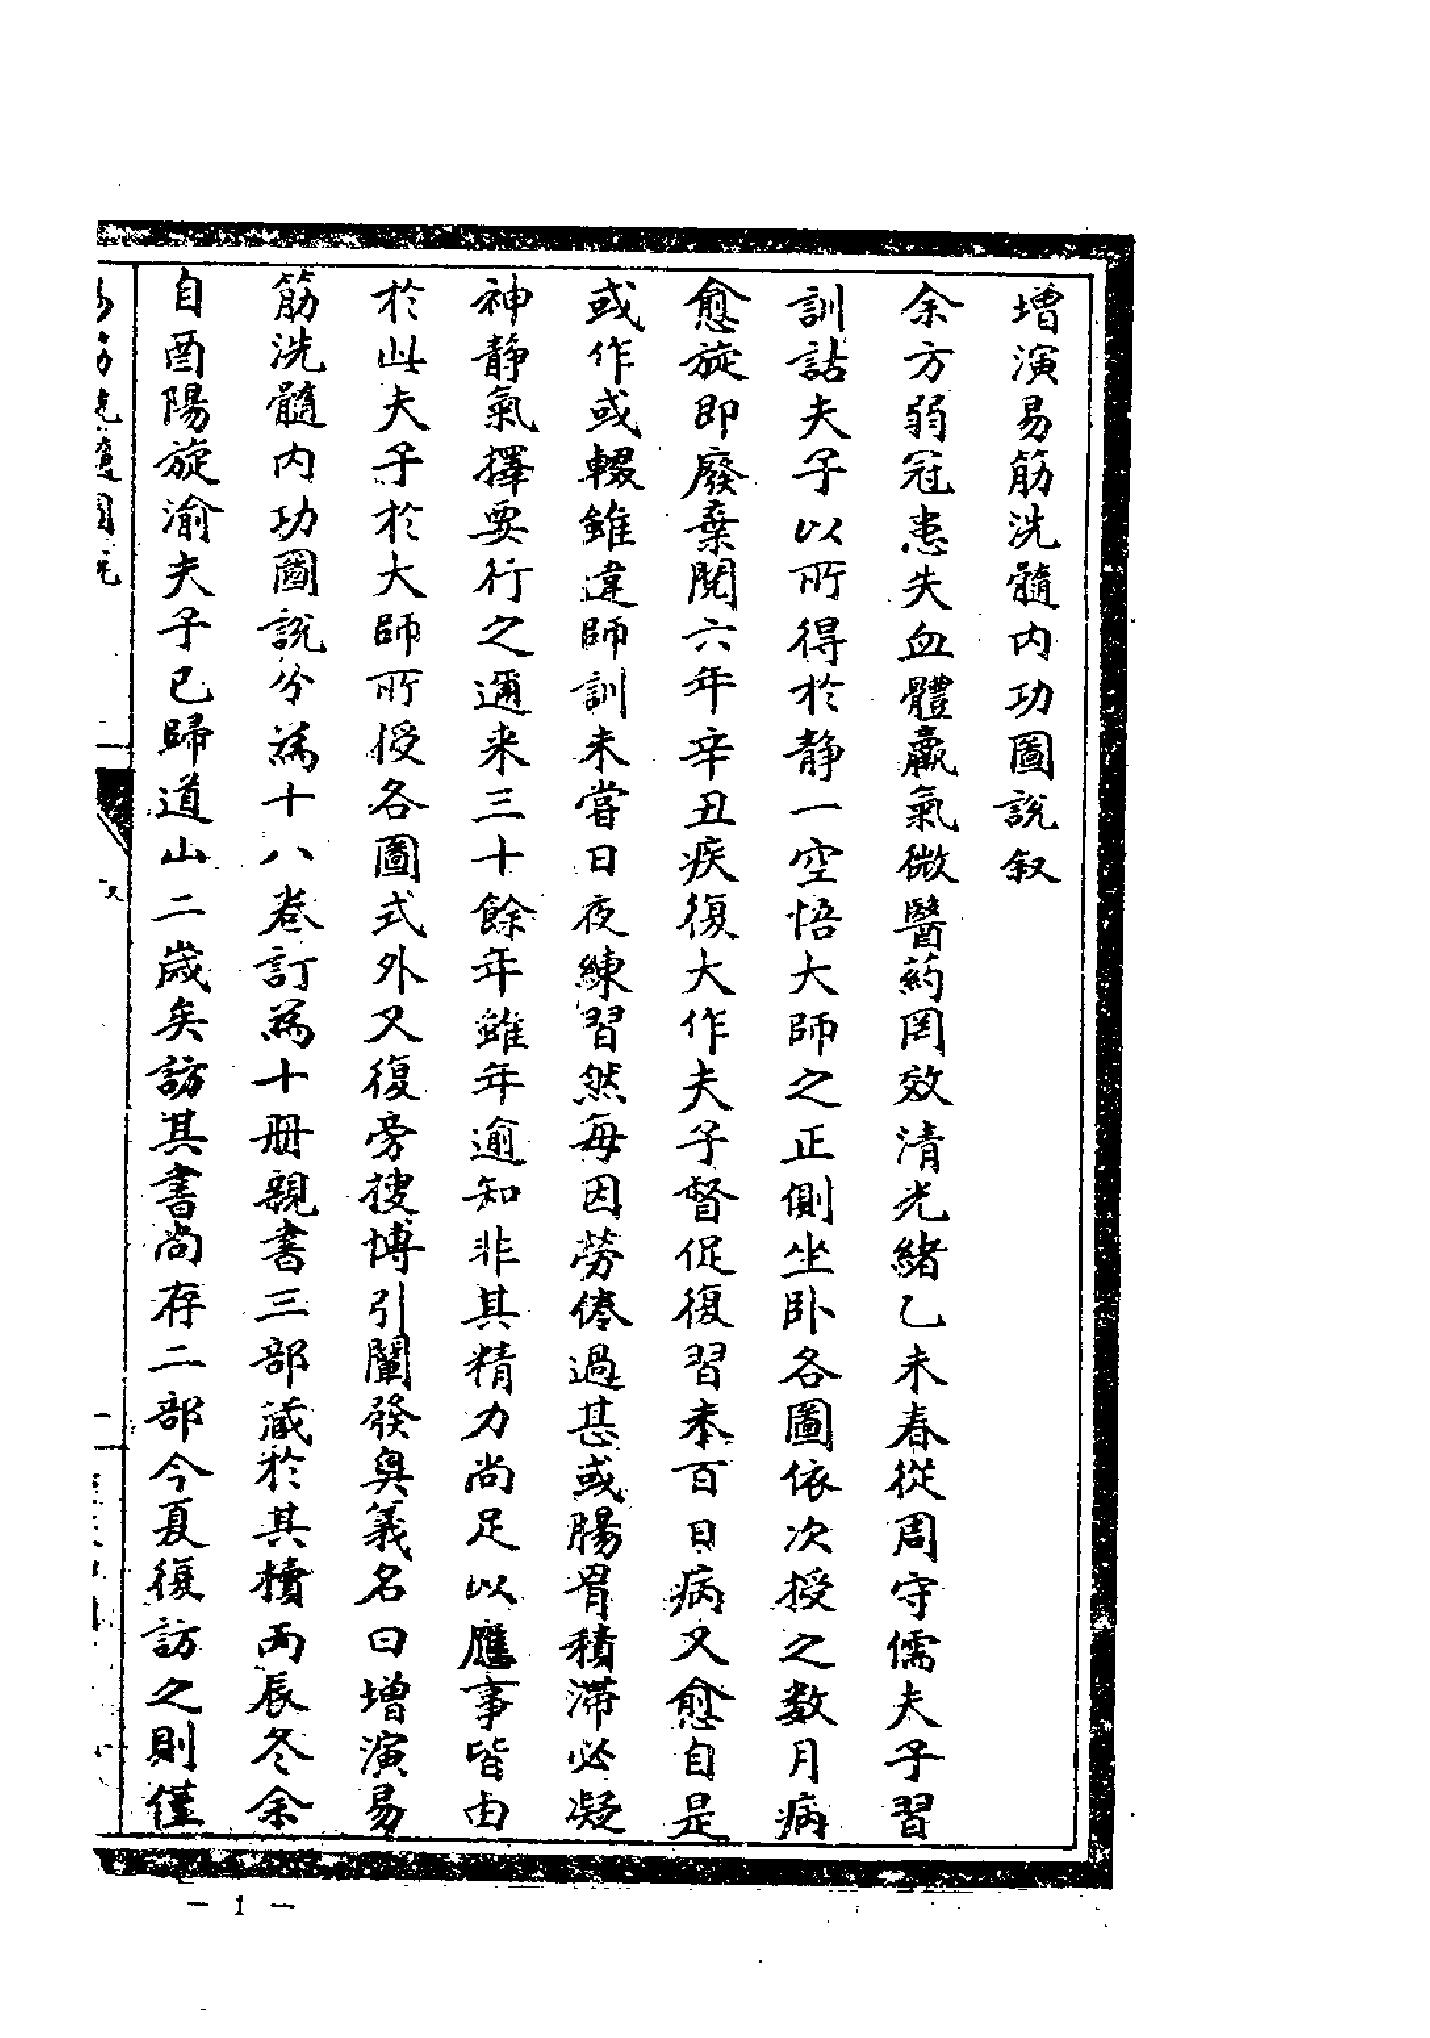 增演易筋洗髓内功圖說叙
余方弱冠患失血體羸氣微醫葯罔效清光緒乙未春從周守儒夫子習
訓詁夫子以所得於靜一空悟大師之正側坐卧各圖依次授之数月病
愈旋即廢棄閱六年辛丑疾復大作夫子督促復習未百日病又愈自是
或作或輟雖違師訓未嘗日夜練習然每因勞倦過甚或腸胃積滯必凝
神靜氣擇要行之邇来三十餘年雖年逾知非其精力尚足以應事皆由
於此夫子於大師所授各圖式外又復旁搜博引闡發奥義名曰增演易
筋洗髓内功圖說分為十八卷訂為十册親書三部藏於其櫝丙辰冬余
自酉陽旋渝夫子已歸道山二歲矣訪其書尚存二部今夏復訪之則僅
— 1 —